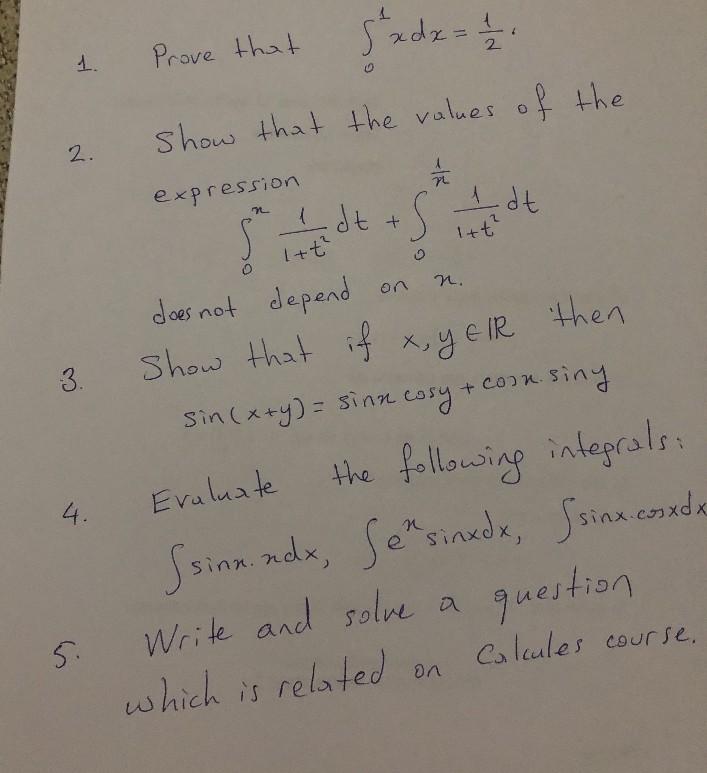 1. Prove that ∫₀¹ xdx = 1/2.
2. Show that the values of the
expression
∫₀ˣ 1/(1+t²) dt + ∫₀^(1/x) 1/(1+t²) dt
does not depend on x.
3. Show that if x, y ∈ ℝ then
sin(x+y) = sinx cosy + cosx. siny
4. Evaluate the following integrals:
∫ sinx. xdx, ∫ eˣ sinxdx, ∫ sinx.cosxdx
5. Write and solve a question
which is related on Calcules course.